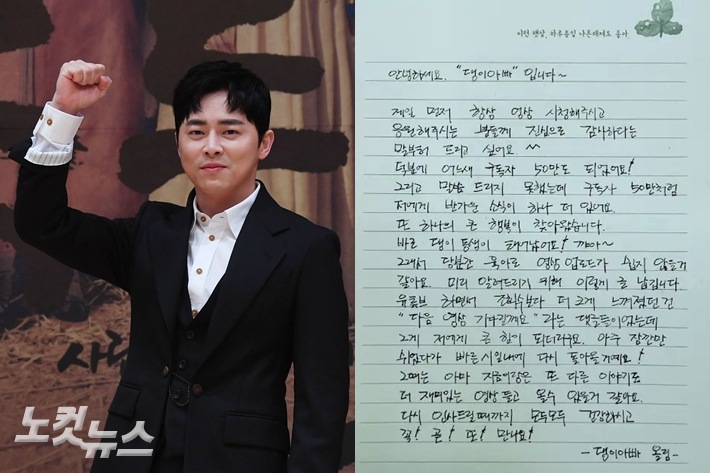 사랑
노컷뉴스
이런 맹삼, 하루종일 나른해져도 좋아.
안녕하세요. "댕이아빠" 입니다~
제일 먼저 항상 영상 시청해주시고
응원해주시는 분들께 진심으로 감사하다는
말부터 드리고 싶어요 ^^
덕분에 어느새 구독자 50만도 되었어요!
그리고 말씀 드리지 못했는데 구독자 50만처럼
저에게 반가운 소식이 하나 더 있어요.
또 하나의 큰 행복이 찾아왔습니다.
바로 댕이 동생이 태어났어요! 꺄아~
그래서 당분간 육아로 영상 업로드가 쉽지 않을거
같아요. 미리 알려드리기 위해 이렇게 글 남깁니다
유튜브 하면서 조회수보다 더 크게 느껴졌던건
"다음 영상 기다릴게요" 라는 댓글들이었는데
그게 저에게 큰 힘이 되더라구요. 아주 잠깐만
쉬었다가 빠른시일내에 다시 돌아올거에요!
그때는 아마 지금이랑은 또 다른 이야기로
더 재미있는 영상 들고 올수 있을거 같아요.
다시 인사드릴때까지 모두모두 건강하시고
꼭! 곧! 또! 만나요!
- 댕이아빠 올림 -